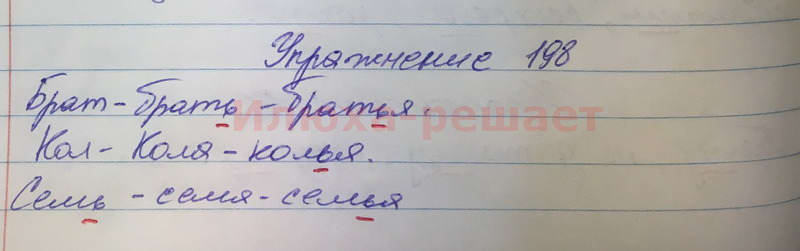 Упражнение 198
Брат - брать - братья.
Кол - Коля - колья.
Семь - семя - семья
Илюха-решает